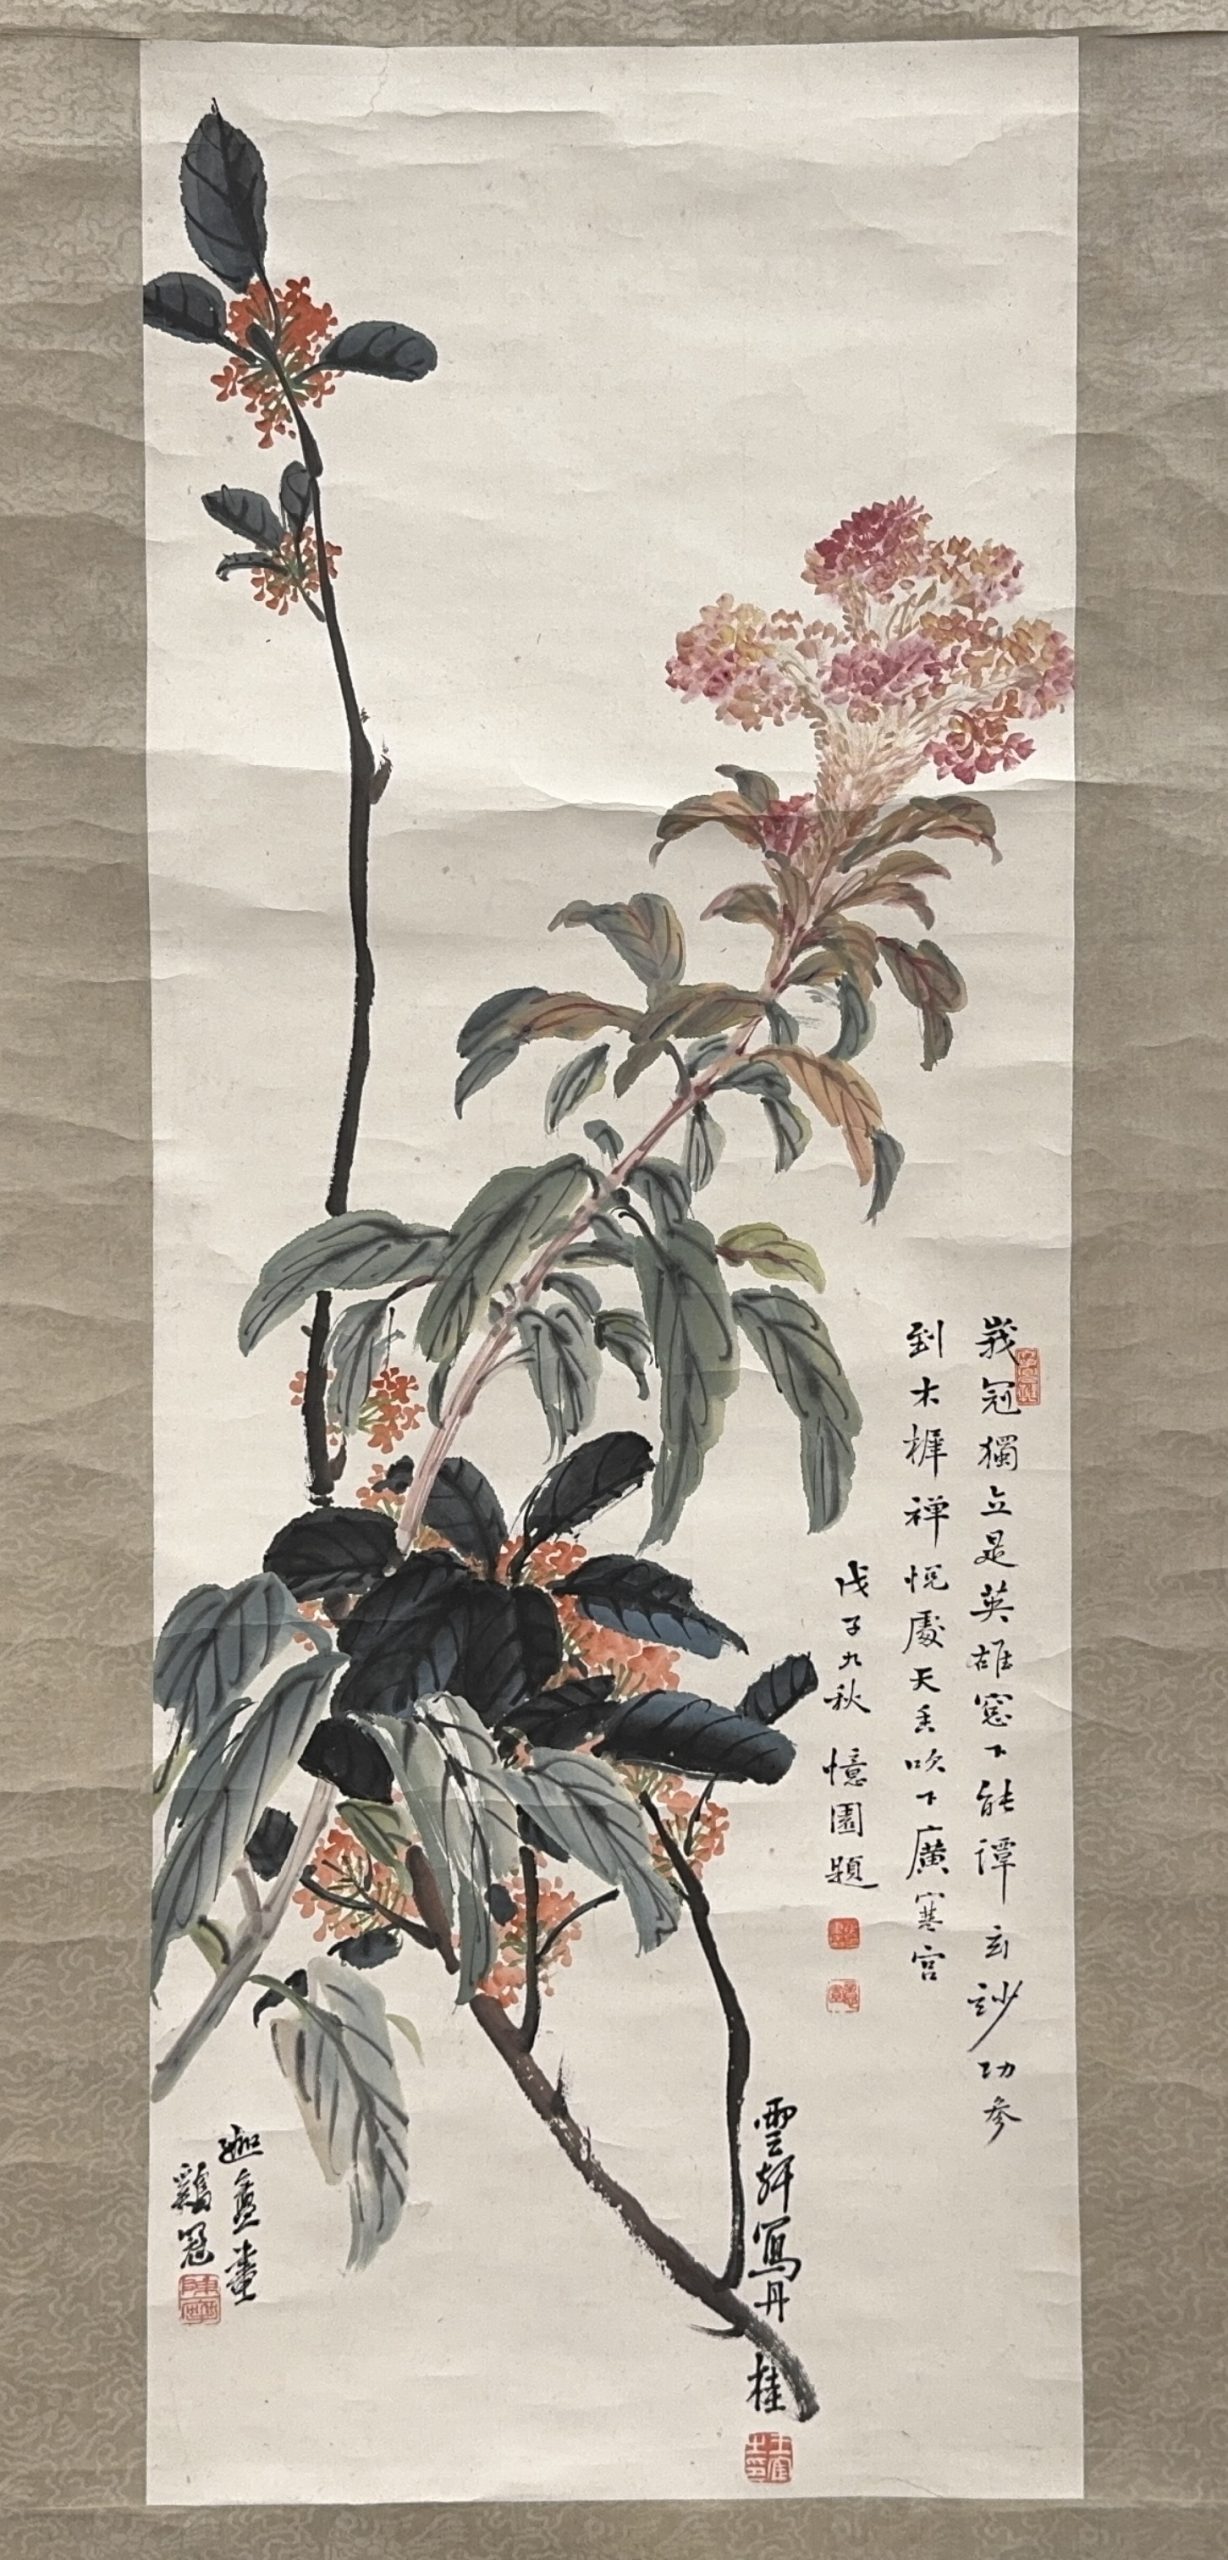 峩冠獨立是英雄窓下能譚玄妙功参
到木樨禅悦處天香吹下廣寒宫
戊子九秋 憶園題
雲軒寫丹桂
迦盦畫
鷄冠